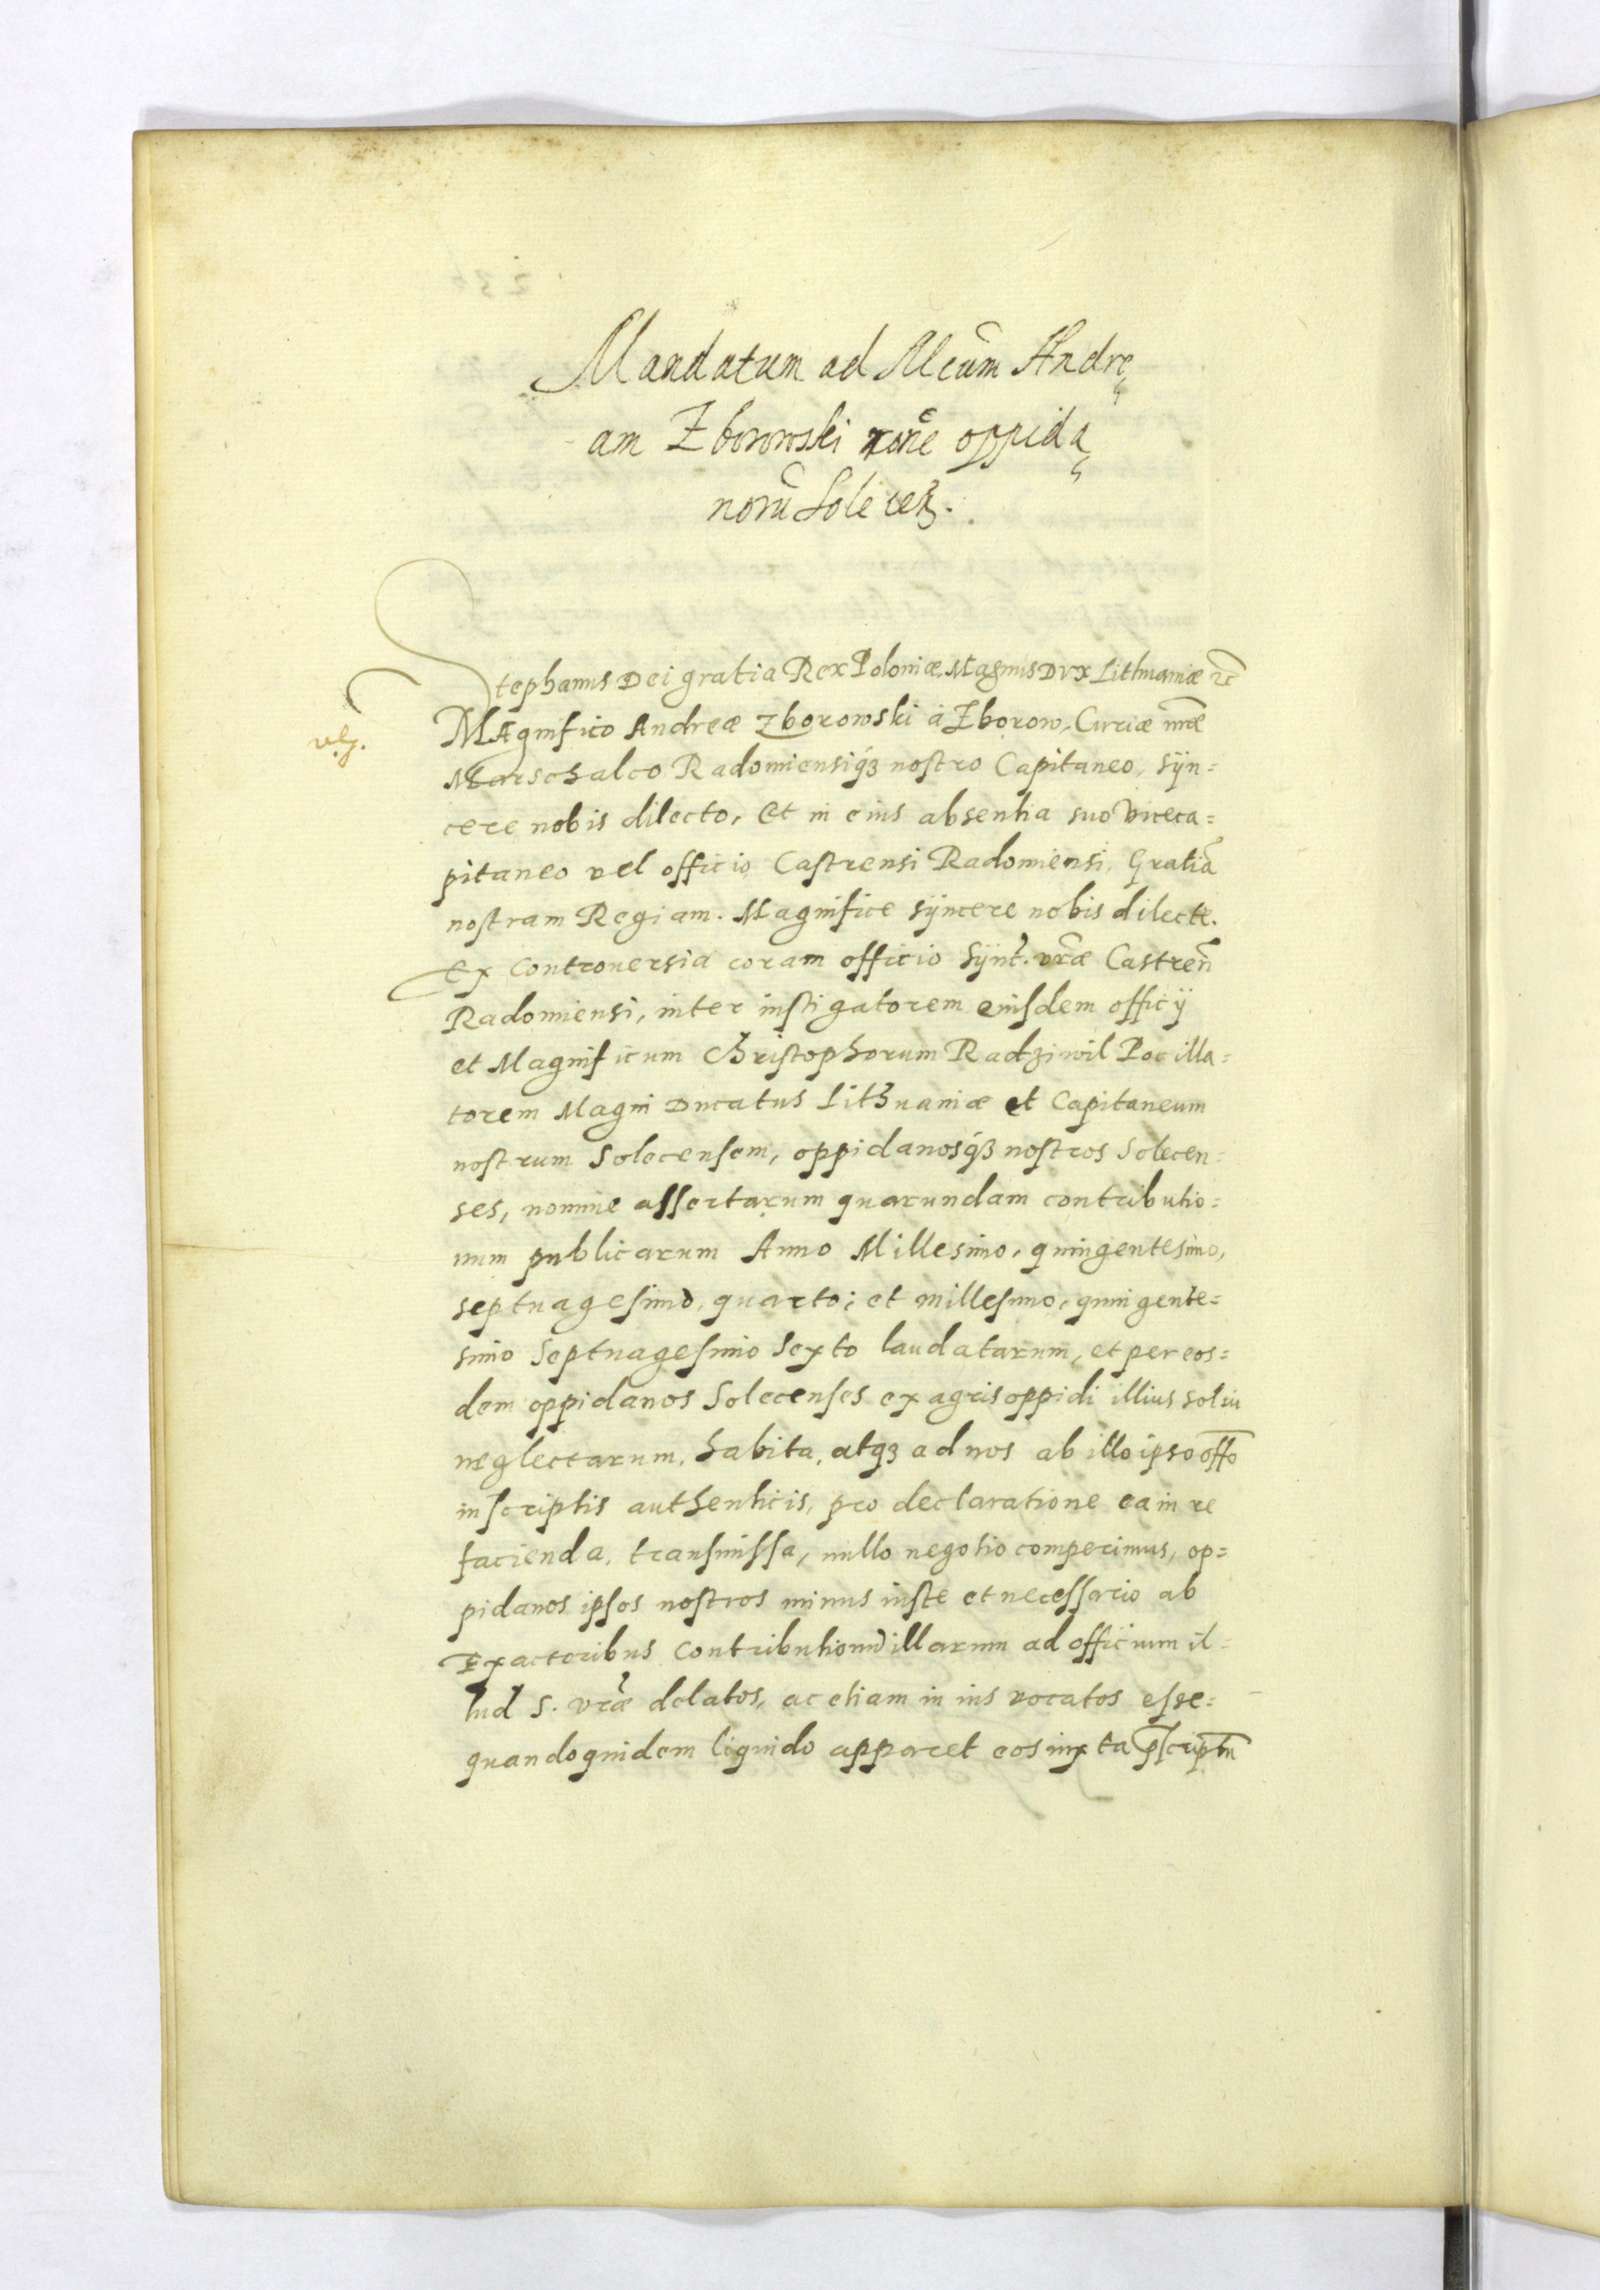 Mandatum ad Mcum Andre
am Zborowski rône oppida
norũ Solecen̄.
Stephanus Dei gratia Rex Poloniæ, Magnus Dux Lithuaniæ etc̄
Magnifico Andreæ Zborowski à Zborow, Curiæ nr̄æ
Marschalco Radomiensiq́ꝫ nostro Capitaneo, syn=
cere nobis dilecto, Et in eius absentia suo Viceca=
pitaneo vel officio Castrensi Radomiensi, Gratiã
nostram Regiam. Magnifice syncere nobis dilecte.
Ex controuersia coram officio Synt. vr̄æ Castren̄
Radomiensi, inter instigatorem eiusdem officÿ
et Magnificum Christophorum Radziwil Pocilla=
torem Magni Ducatus Lithuaniæ et Capitaneum
nostrum Solecensem, oppidanosq́ꝫ nostros Solecen=
ses, nomine assertarum quarundam contributio=
num publicarum Anno Millesimo, quingentesimo,
septuagesimo, quarto; et millesimo, quingente=
simo Septuagesimo Sexto laudatarum, et per eos=
dem oppidanos Solecenses ex agris oppidi illius solui
neglectarum, habita, atqꝫ ad nos ab illo ipso offo
in scriptis authenticis, pro declaratione ea in re
facienda, transmissa, nullo negotio comperimus, op=
pidanos ipsos nostros minus iuste et necessario ab
Exactoribus Contributionũ illarum ad officium il=
lud S. vr̄æ delatos, ac etiam in ius vocatos esse=
quandoquidem liquido apparet eos iuxta p̄scriptũ